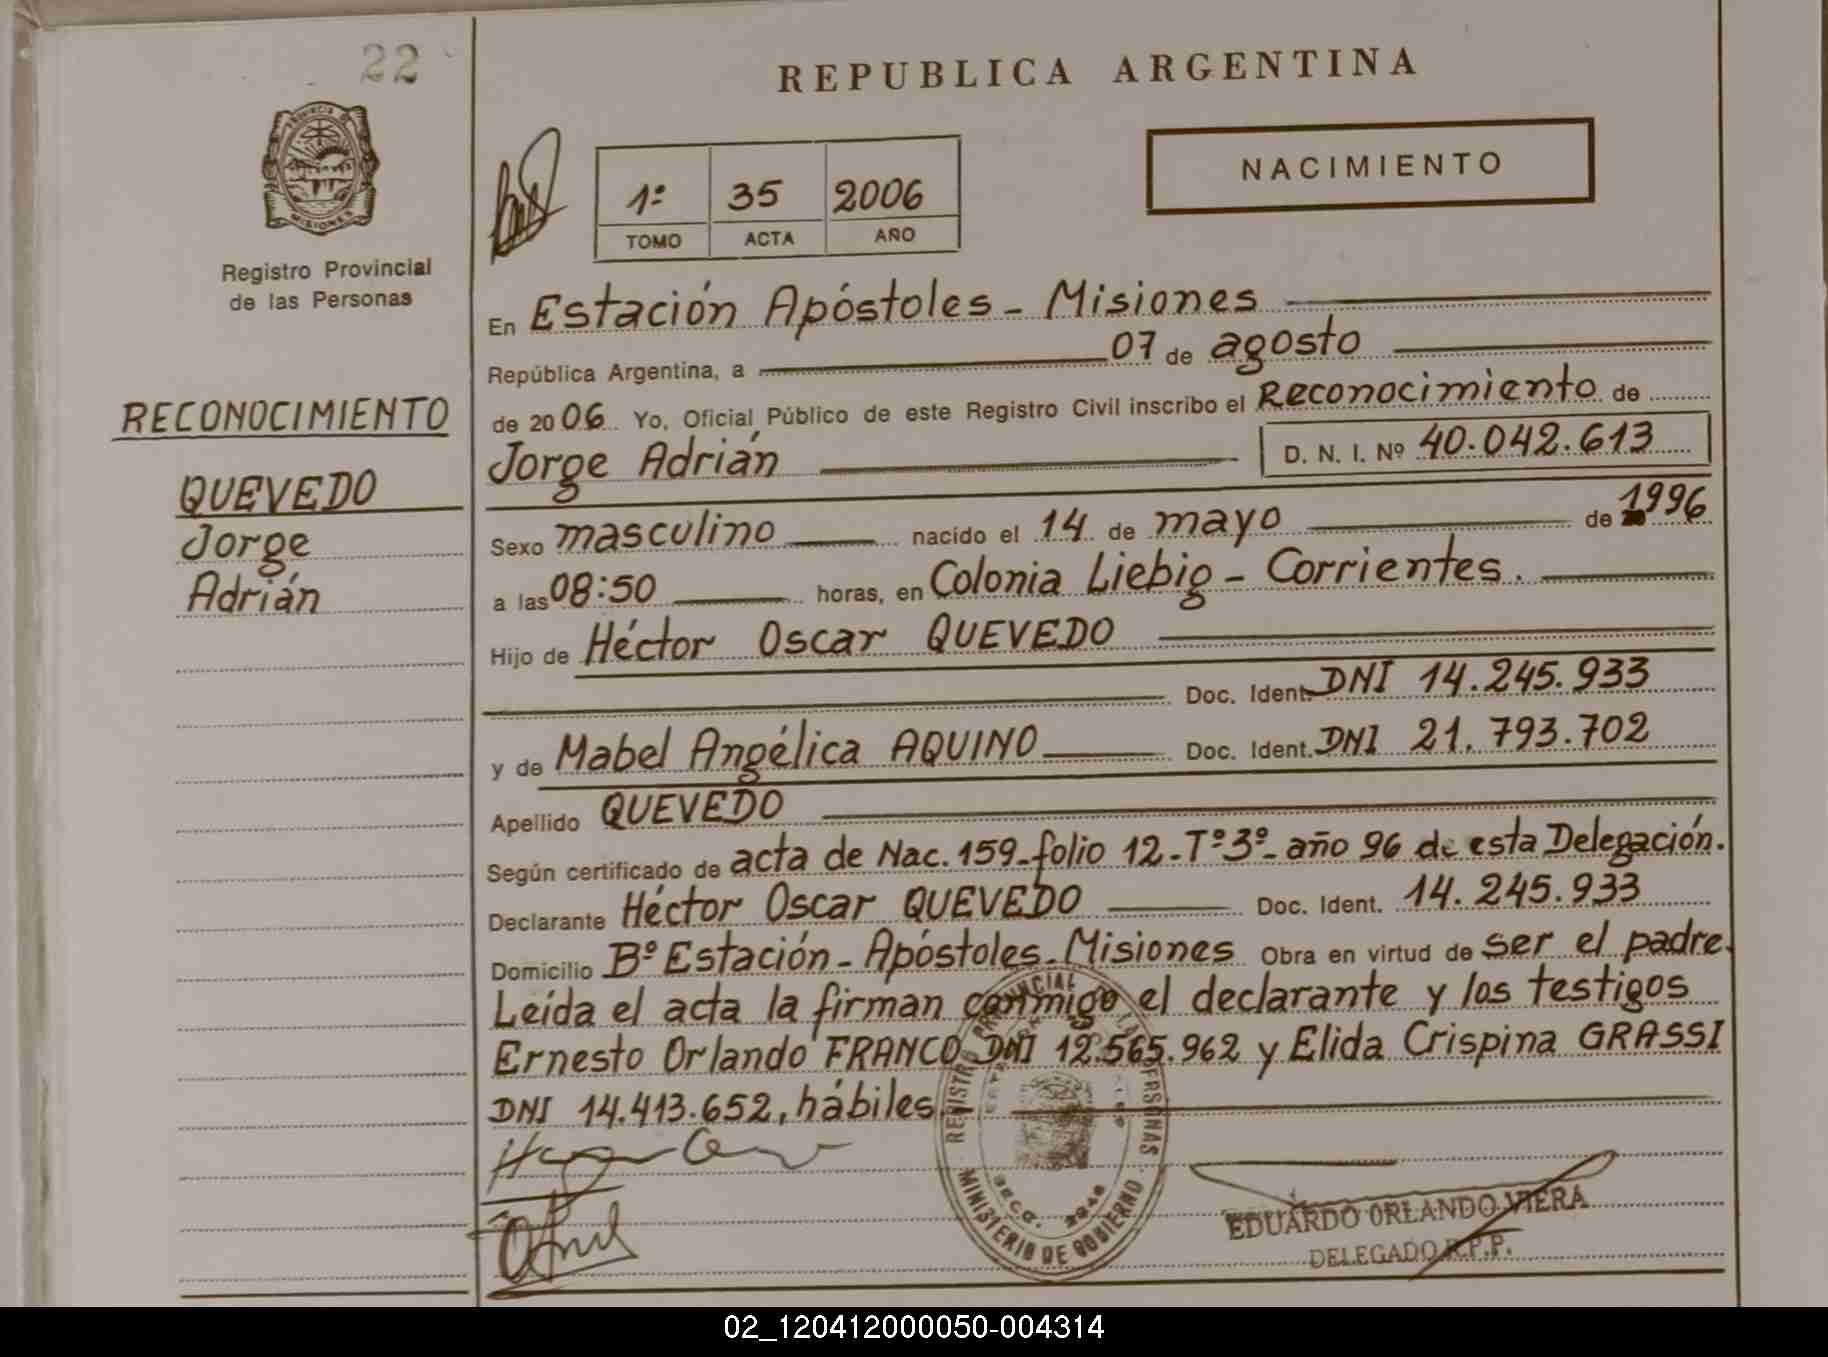 22
REPUBLICA ARGENTINA
PROVINCIA DE
MISIONES
1º 35 2006
TOMO ACTA AÑO
NACIMIENTO
Registro Provincial
de las Personas
RECONOCIMIENTO
QUEVEDO
Jorge
Adrián
En Estación Apóstoles - Misiones
República Argentina, a 07 de agosto
de 2006 Yo, Oficial Público de este Registro Civil inscribo el Reconocimiento de
Jorge Adrián D. N. I. Nº 40.042.613
Sexo masculino nacido el 14 de mayo de 1996
a las 08:50 horas, en Colonia Liebig - Corrientes.
Hijo de Héctor Oscar QUEVEDO
Doc. Ident. DNI 14.245.933
y de Mabel Angélica AQUINO Doc. Ident. DNI 21.793.702
Apellido QUEVEDO
Según certificado de acta de Nac. 159 - folio 12 - Tº 3º - año 96 de esta Delegación.
Declarante Héctor Oscar QUEVEDO Doc. Ident. 14.245.933
Domicilio Bº Estación - Apóstoles - Misiones Obra en virtud de ser el padre.
Leída el acta la firman conmigo el declarante y los testigos
Ernesto Orlando FRANCO DNI 12.565.962 y Elida Crispina GRASSI
DNI 14.413.652, hábiles.-
REGISTRO PROVINCIAL DE LAS PERSONAS
MINISTERIO DE GOBIERNO
EDUARDO ORLANDO VIERA
DELEGADO R.P.P.
02_120412000050-004314